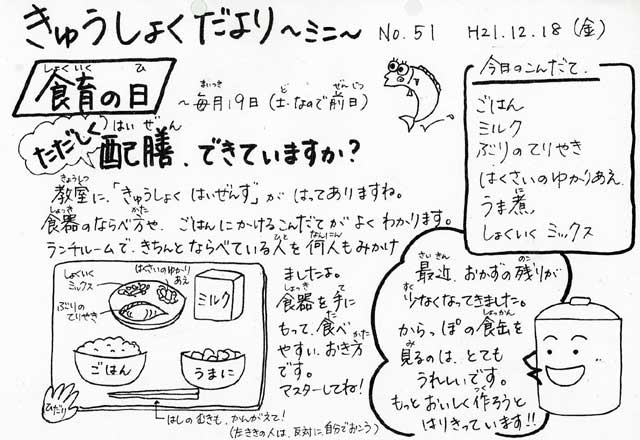 きゅうしょくだより〜ミニ〜 No.51 H21.12.18（金）
食育の日
しょくいく ひ
〜毎月19日（土・なので前日）
まいつき ど ぜんじつ
ただしく配膳、できていますか？
はいぜん
教室に、「きゅうしょく はいぜんず」が はってありますね。
きょうしつ
食器のならべ方や、ごはんにかけるこんだてがよくわかります。
しょっき かた
ランチルームで、きちんとならべている人を何人もみかけ
ひと なんにん
ましたよ。
食器を手に
しょっき て
もって、食べ
た
やすい、おき方
かた
です。
マスターしてね！
今日のこんだて
ごはん
ミルク
ぶりのてりやき
はくさいのゆかりあえ
うま煮
に
しょくいく ミックス
しょくいく
ミックス
はくさいのゆかり
あえ
ぶりの
てりやき
ミルク
ごはん
うまに
ひだり
はしの むきも、かんがえて！
（左ききの人は、反対に、自分でおこう）
最近、おかずの残りが
さいきん のこ
少なくなってきました。
すく
からっぽの食缶を
しょっかん
見るのは、とても
み
うれしいです。
もっとおいしく作ろうと
つく
はりきっています!!